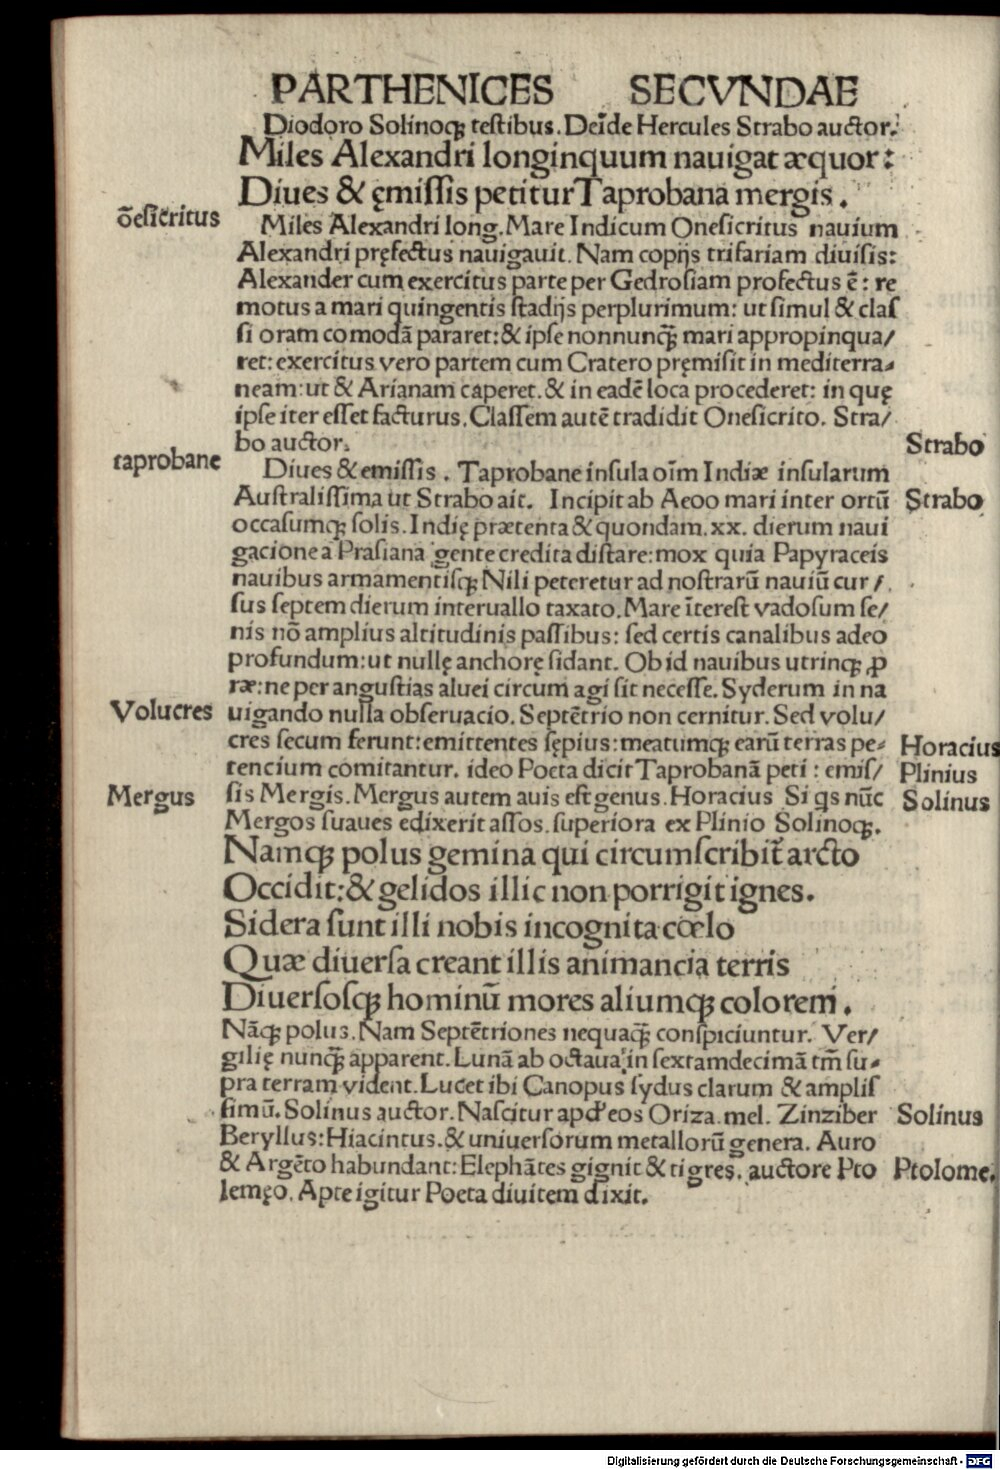 PARTHENICES SECVNDAE
Diodoro Solinoqꝫ testibus. Deīde Hercules Strabo auctor.
Miles Alexandri longinquum nauigat æquor:
Diues & ęmissis petitur Taprobana mergis.
ōesicritus
Miles Alexandri long. Mare Indicum Onesicritus nauium
Alexandri pręfectus nauigauit. Nam copijs trifariam diuisis:
Alexander cum exercitus parte per Gedrosiam profectus ē: re
motus a mari quingentis stadijs perplurimum: ut simul & clas
si oram comodā pararet: & ipse nonnunqꝫ̄ mari appropinqua/
ret: exercitus vero partem cum Cratero pręmisit in mediterra-
neam: ut & Arianam caperet. & in eadē loca procederet: in quę
ipse iter esset facturus. Classem autē tradidit Onesicrito. Stra/
bo auctor.
Strabo
taprobane
Diues & emissis. Taprobane insula oīm Indiæ insularum
Australissima ut Strabo ait. Incipit ab Aeoo mari inter ortū
Strabo
occasumqꝫ solis. Indię prætenta & quondam. xx. dierum naui
gacione a Prasiana gente credita distare: mox quia Papyraceis
nauibus armamentisqꝫ Nili peteretur ad nostrarū nauiū cur/
sus septem dierum interuallo taxato. Mare īterest vadosum se/
nis nō amplius altitudinis passibus: sed certis canalibus adeo
profundum: ut nullę anchorę sidant. Ob id nauibus utrinqꝫ ꝓ
ræ: ne per angustias aluei circum agi sit necesse. Syderum in na
Volucres
uigando nulla obseruacio. Septētrio non cernitur. Sed volu/
cres secum ferunt: emittentes sępius: meatumqꝫ earū terras pe-
Horacius
tencium comitantur. ideo Poeta dicit Taprobanā peti: emis/
Plinius
Mergus
sis Mergis. Mergus autem auis est genus. Horacius Si qs nūc
Solinus
Mergos suaues edixerit assos. superiora ex Plinio Solinoqꝫ.
Namqꝫ polus gemina qui circumscribit᷑ arcto
Occidit: & gelidos illic non porrigit ignes.
Sidera sunt illi nobis incognita cœlo
Quæ diuersa creant illis animancia terris
Diuersosqꝫ hominū mores aliumqꝫ colorem.
Nāqꝫ polus. Nam Septētriones nequaqꝫ̄ conspiciuntur. Ver/
gilię nunqꝫ̄ apparent. Lunā ab octaua in sextamdecimā tm̄ su-
pra terram vident. Lucet ibi Canopus sydus clarum & amplis
simū. Solinus auctor. Nascitur apđ eos Oriza. mel. Zinziber
Solinus
Beryllus: Hiacintus. & uniuersorum metallorū genera. Auro
& Argēto habundant: Elephātes gignit & tigres. auctore Pto
Ptolome.
lemęo. Apte igitur Poeta diuitem dixit.
Digitalisierung gefördert durch die Deutsche Forschungsgemeinschaft - DFG